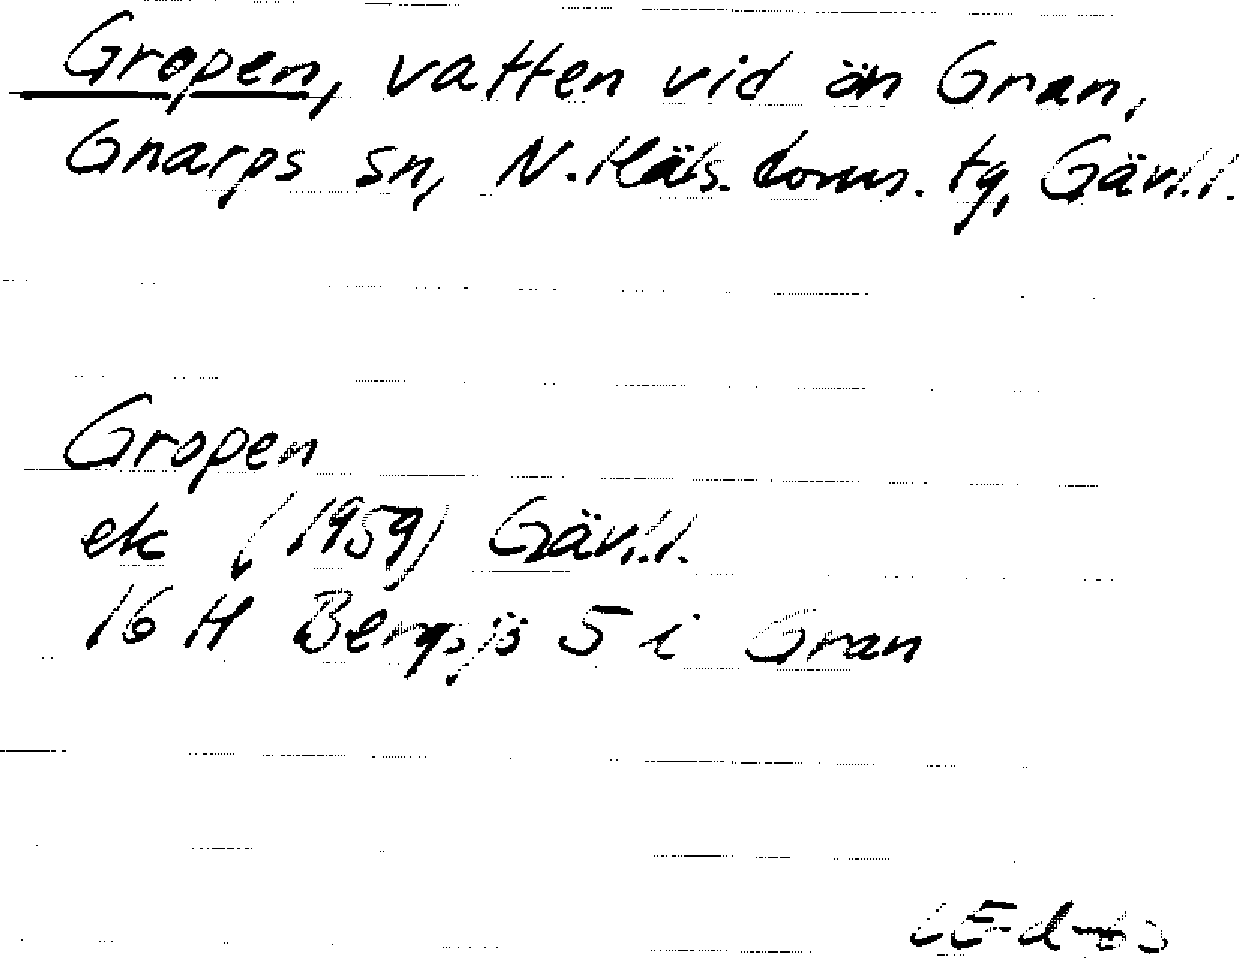 Gropen, vatten vid ön Gran,
Gnarps sn, N. Häls. doms. tg, Gävl.l.
Gropen
ek (1959) Gävl.l.
16 H Bergsjö 5 i Gran